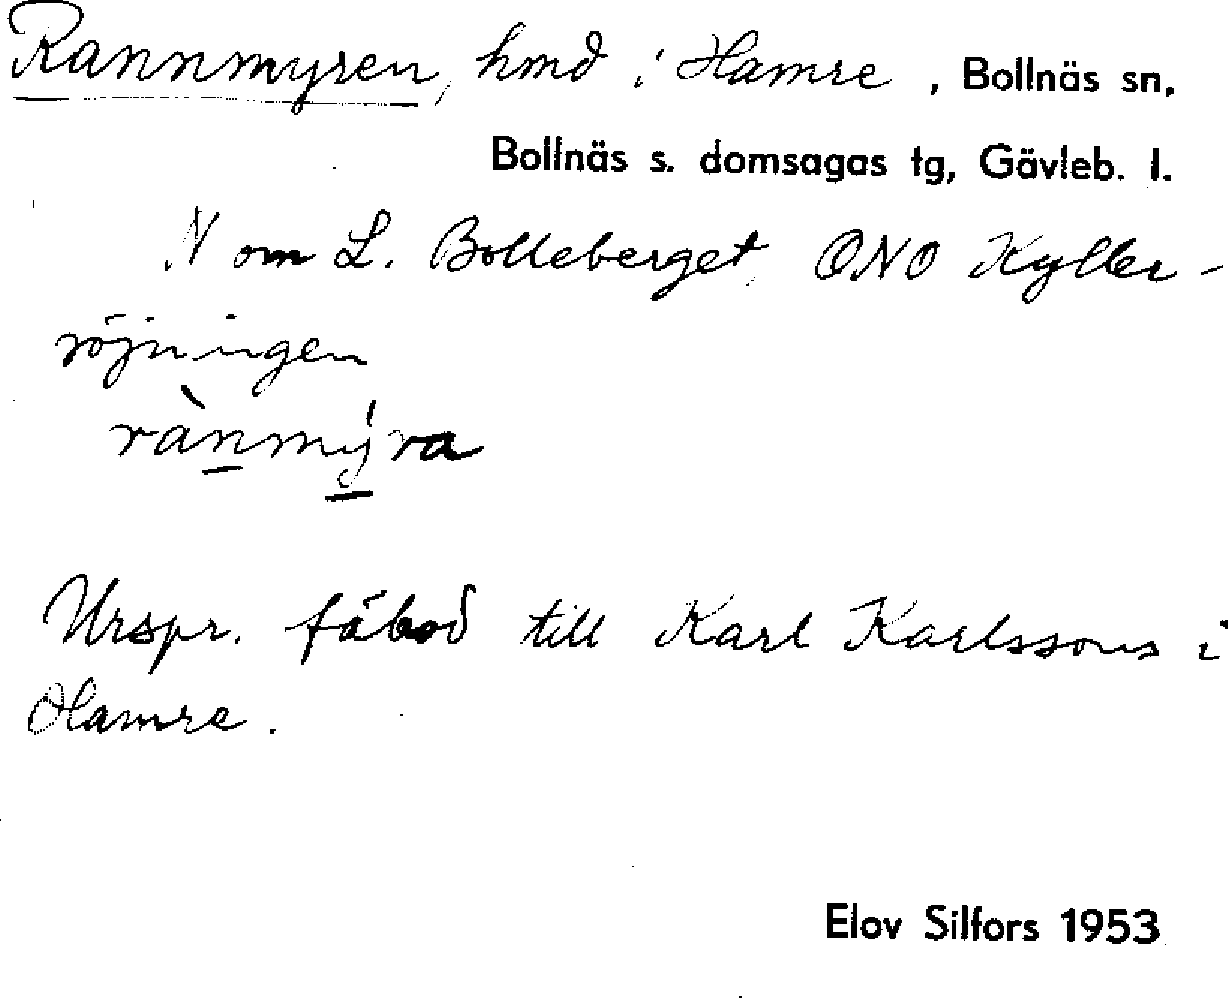 Rannmyren, hmd i Hamre, Bollnäs sn,
Bollnäs s. domsagas tg, Gävleb. l.
N om L. Bolleberget, ONO Kyller-
röjningen
rànmýra
Urspr. fäbod till Karl Karlssons i
Hamre.
Elov Silfors 1953